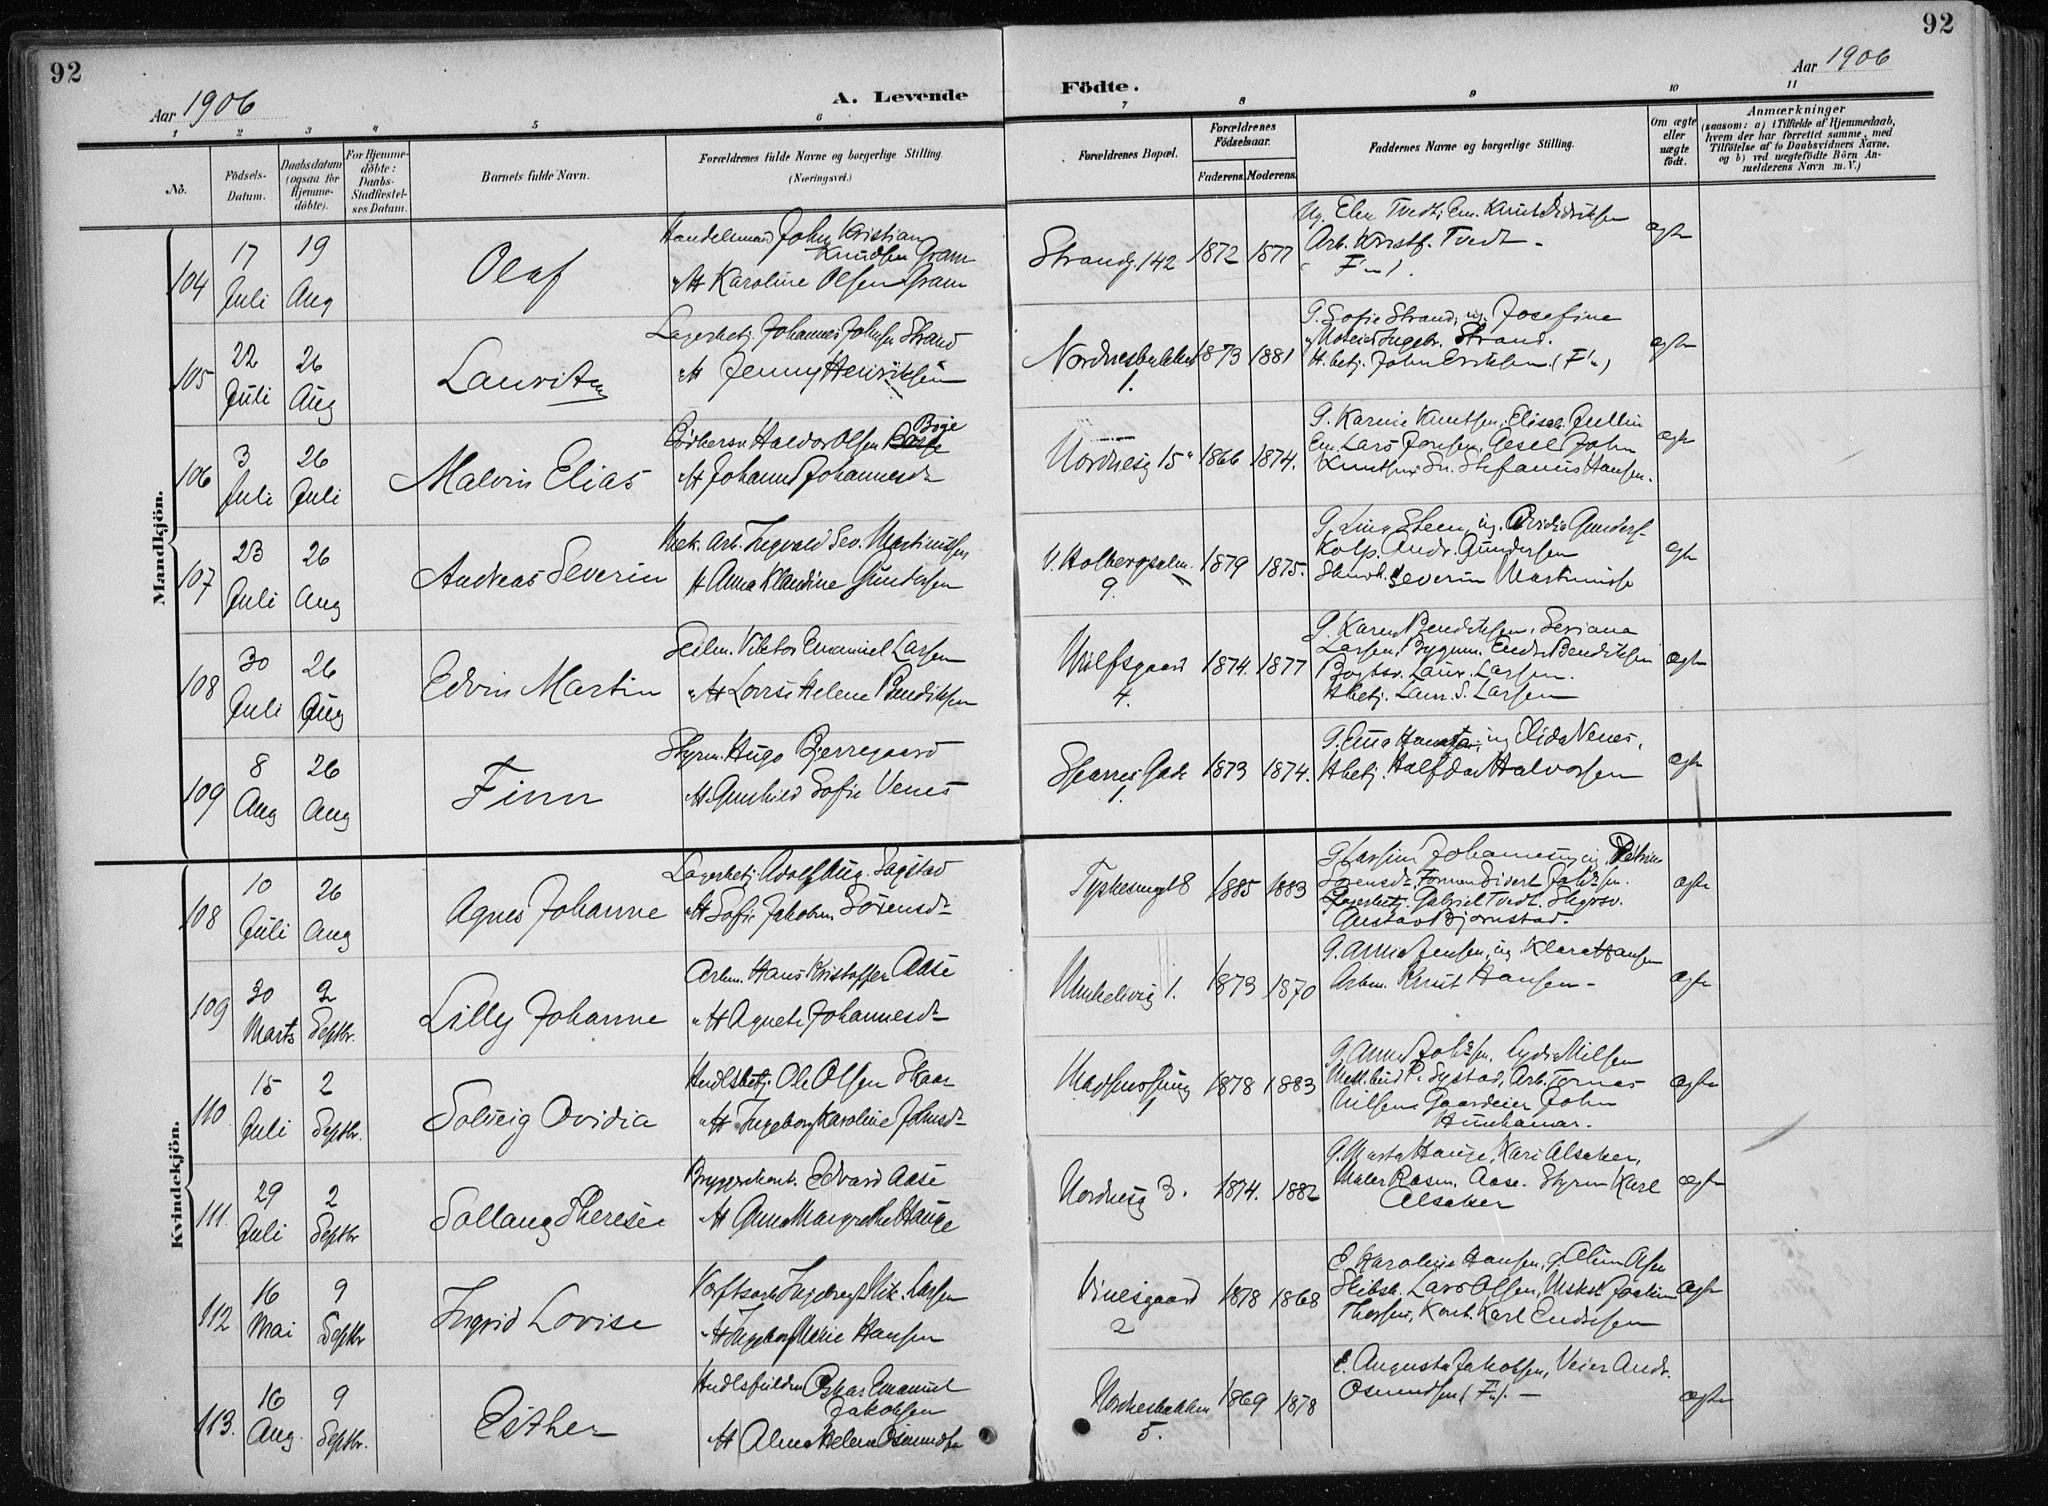 92
92
Aar 1906
A. Levende
Födte.
Aar 1906
1 2 3 4 5 6 7 8 9 10 11
No.
Födsels-Datum.
Daabsdatum (ogsaa for Hjemme-döbte).
For Hjemme-döbte: Daabs-Stadfæstel-ses Datum.
Barnets fulde Navn.
Forældrenes fulde Navne og borgerlige Stilling. (Næringsvei.)
Forældrenes Bopæl.
Forældrenes Födselsaar.
Faderens. Moderens.
Faddernes Navne og borgerlige Stilling.
Om ægte eller uægte födt.
Anmærkninger
(saasom: a) i Tilfælde af Hjemmedaab, hvem der har forrettet samme, med Tilföielse af to Daabsvidners Navne, og b) ved uægtefödte Börn An-melderens Navn m.V.)
Mandkjön.
104 17 Juli 19 Aug Olaf
Handelsmand John Kristian Knudsen Gram
H Karoline Olsen Gram
Strandg. 142 1872 1877
Arb. Tvedt
ægte
105 22 Juli 26 Aug Lauritz
Lagerbetj. Johannes Johnsen Strand
H Jenny Henriksen
Nordnesbakken 1. 1873 1881
G. Sofie Strand, ug. Josefine
Strand.
H.betj. John Eriksen (F.)
ægte
106 3 Juli 26 Juli Malvin Elias
Bödkersv. Haldor Olsen Böge
H Johanna Johannesdt
Nordnesg 15 1866 1874.
G. Karine Knutsen,
Em. Lars Jonsen, Gesel John
Knutsen, Stefanus Hansen.
ægte
107 23 Juli 26 Aug Andreas Severin
Mek. Arb. Ingvald Sev. Martinussen
H Anna Klaudine Gundersen
V. Holbergsalm. 9. 1879 1875.
G. Lina Steen, ug. Ovidia Gunders.
Kolp. Andr. Gundersen
Severin Martinusse
ægte
108 30 Juli 26 Aug Edvin Martin
Seilm. Viktor Emanuel Larsen
H Lovise Helene Bendiksen
Ulfsgaard 4. 1874. 1877
G. Karen Bendiksen, Seviana
Larsen, Bygnm. Endr. Bendiksen
Laur. Larsen.
Hbetj. Laur. S. Larsen
ægte
109 8 Aug 26 Aug Finn
Styrm. Hugo Bjerregaard
H Gunhild Sofie Venes
1. 1873 1874.
ug Elida Venes,
Hbetj. Halfdan Halvorsen
ægte
Kvindekjön.
108 10 Juli 26 Aug Agnes Johanne
Lagerbetj. Adolf Aug. Sagstad
H Sofie Jakobin. Sörensdt
Tyskesmugt 8 1885 1883
Johannesen, ug. Petrine
Sörensdt, Formand Sivert Jakobsen.
Lagerbetj. Gabriel Tvedt.
Gustav Bjørnstad.
ægte
109 30 Marts 2 Septbr. Lilly Johanne
Arbm. Hans Kristoffer Aase
H Agnete Johannesdt
Munkebrg 1. 1873 1870
G. Anna Jensen, ug. Klara Hansen
Arbm. Knut Hansen
ægte
110 15 Juli 2 Septbr. Solveig Ovidia
Hndlsbetj. Ole Olsen Skaar
H Ingeborg Karoline Johnsdt
1 1878 1883
Nilsen
Arb. Tomas
Nilsen, Gaardeier John
ægte
111. 29 Juli 2 Septbr Sollaug Therese
Edvard Aase
H Anna Margrethe Hauge
Nordnesg 3. 1874. 1882
G. Marta Hauge, Kari Alsaker,
Maler Rasm. Aase. Styrm Karl
Alsaker
ægte
112 16 Mai 9 Septbr Ingrid Lovise
Værftsarb Ingebrigt Nik. Larsen
H Ingeborg Marie Hansen
Vinesgaard 2 1878 1868
E. Karoline Hansen,
Lars Olsen, Joakim
Thorsen, Kont. Karl Endresen
ægte
113. 16 Aug. 9 Septbr. Esther
Hndlsfuldm Oskar Emanuel Jakobsen
H Alma Helene Osmundse
Nordnesbakken 5. 1869 1878
E. Augusta Jakobsen, Veier Andr.
Osmundsen (F.) —
ægte